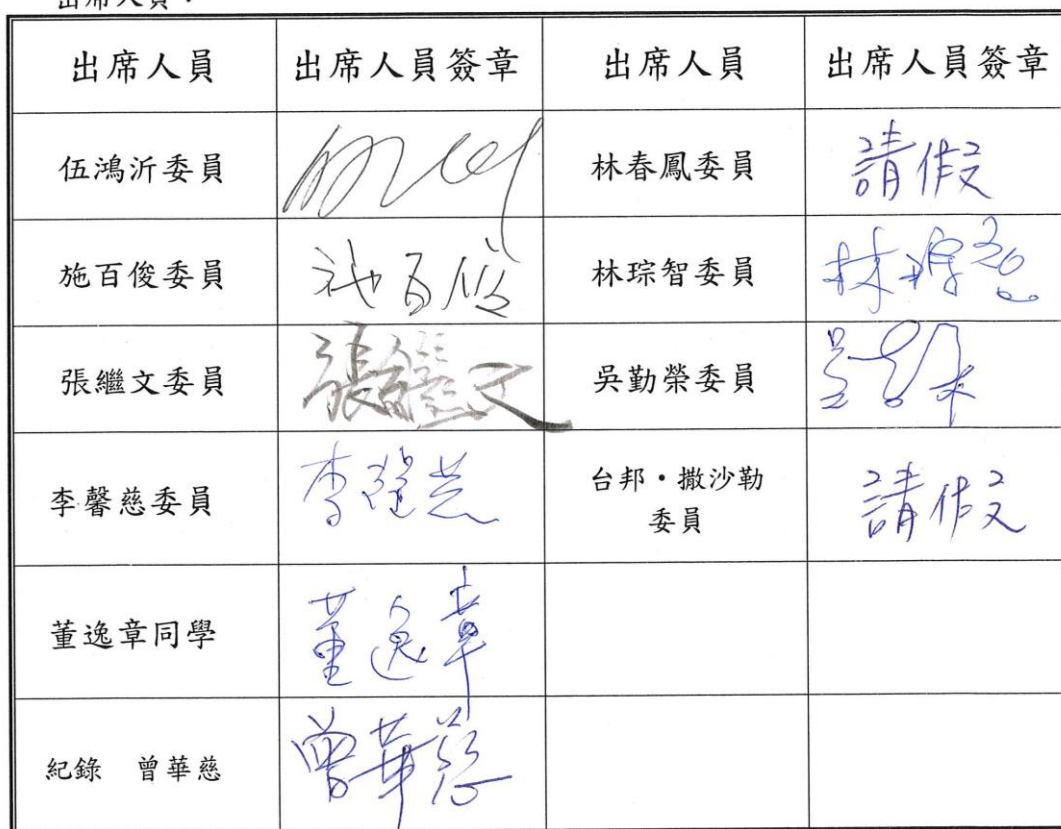 出席人員：
出席人員 出席人員簽章 出席人員 出席人員簽章
伍鴻沂委員 林春鳳委員 請假
施百俊委員 施百俊 林琮智委員 林琮智
張繼文委員 張繼文 吳勤榮委員
李馨慈委員 李馨慈 台邦・撒沙勒
委員 請假
董逸章同學 董逸章
紀錄 曾華慈 曾華慈